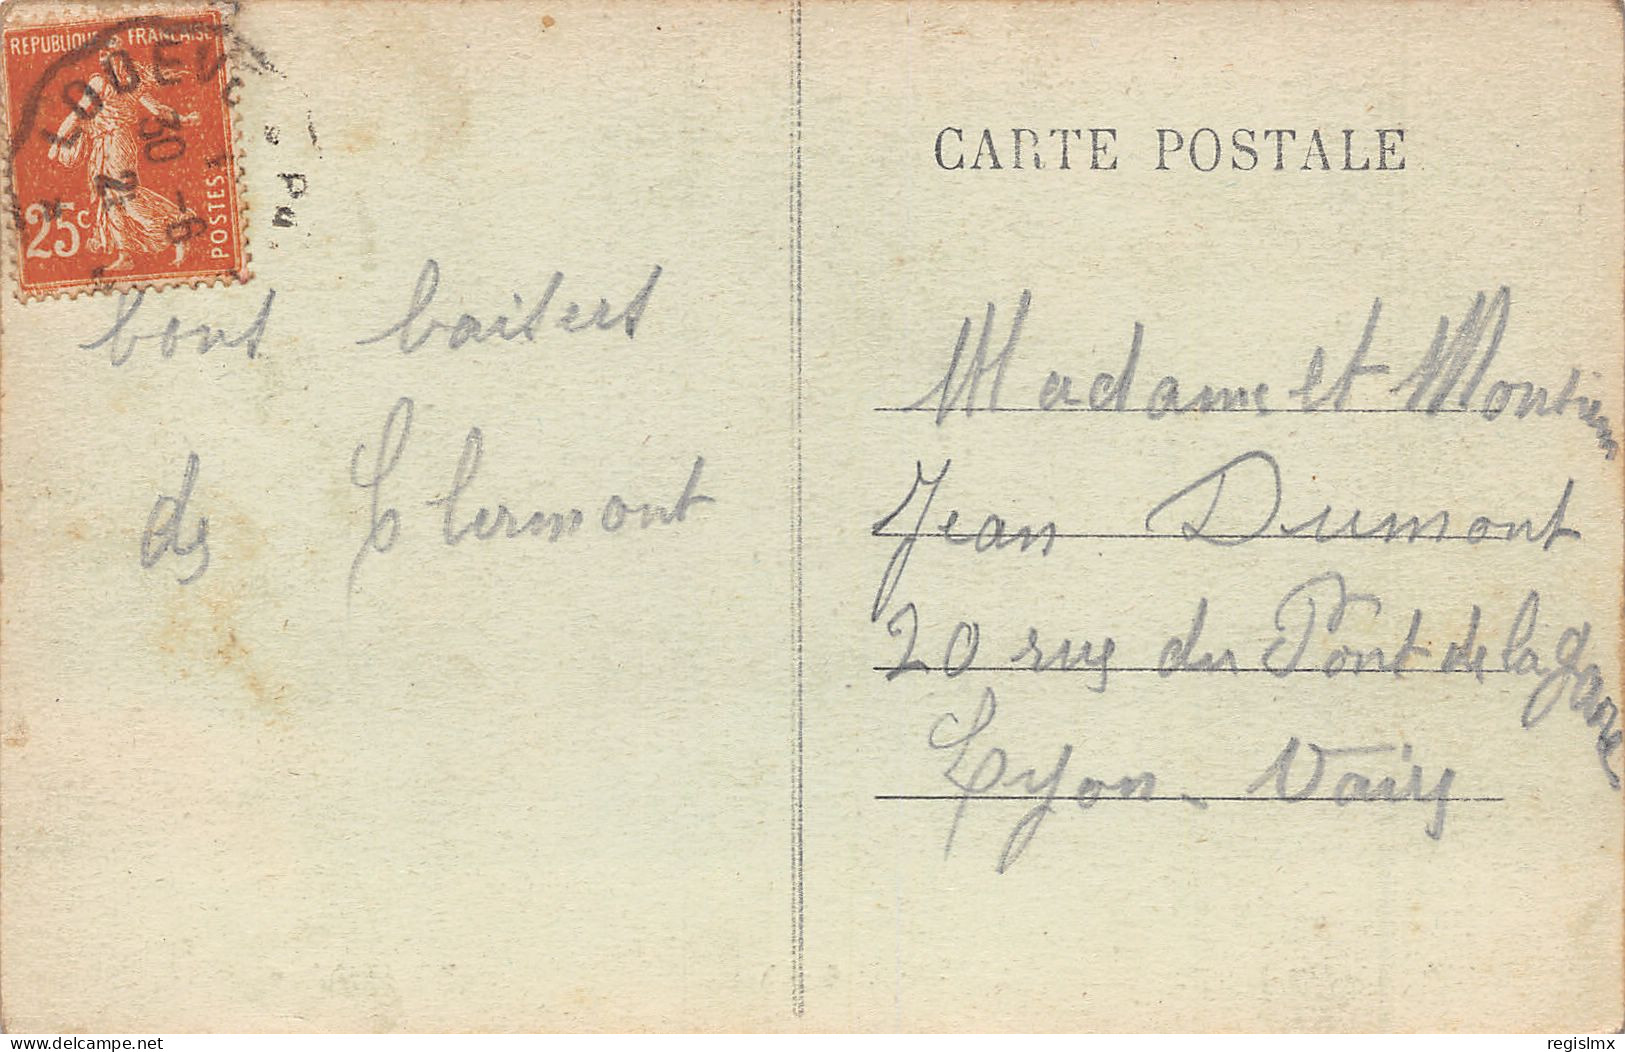 REPUBLIQUE FRANÇAISE
LODEV
30
-6
24
25c
POSTES
Pu
CARTE POSTALE
bons baisers
de Clermont
Madame et Monsieur
Jean Dumont
20 rue du Pont de la gare
Lyon - Vaise
delcampe.net
regislmx